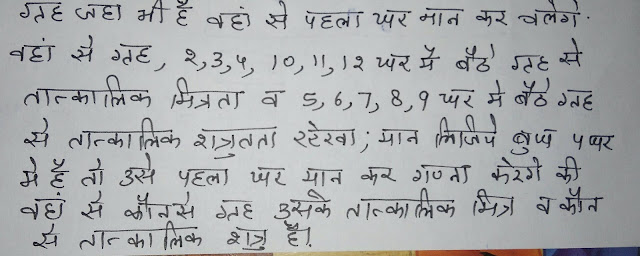 ग्रह जहा भी है वहां से पहला घर मान कर चलेगे.
वहां से ग्रह, २,3,५, 10,11,12 घर में बैठे ग्रह से
तात्कालिक मित्रता व 5,6,7,8,9 घर मे बैठे ग्रह
से तात्कालिक शत्रुतता रखेगा; मान लिजिये बुध ५ घर
मे है तो उसे पहला घर मान कर गणना करेगे की
वहां से कौनसे ग्रह उसके तात्कालिक मित्र व कौन
से तात्कालिक शत्रु है।